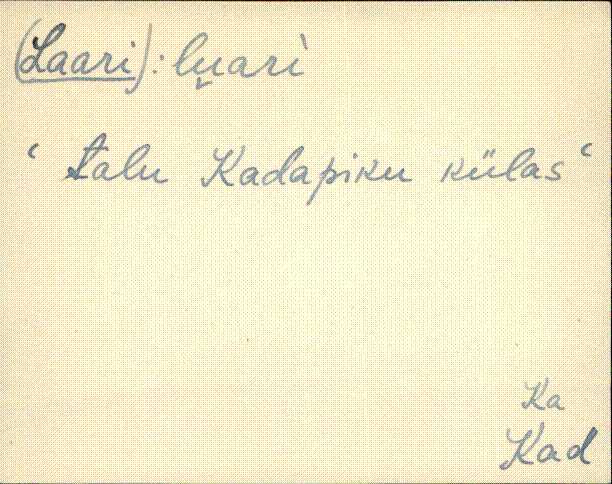 (Laari): lu̯arì
‘ talu Kadapiku külas ‘
Ka
Kad